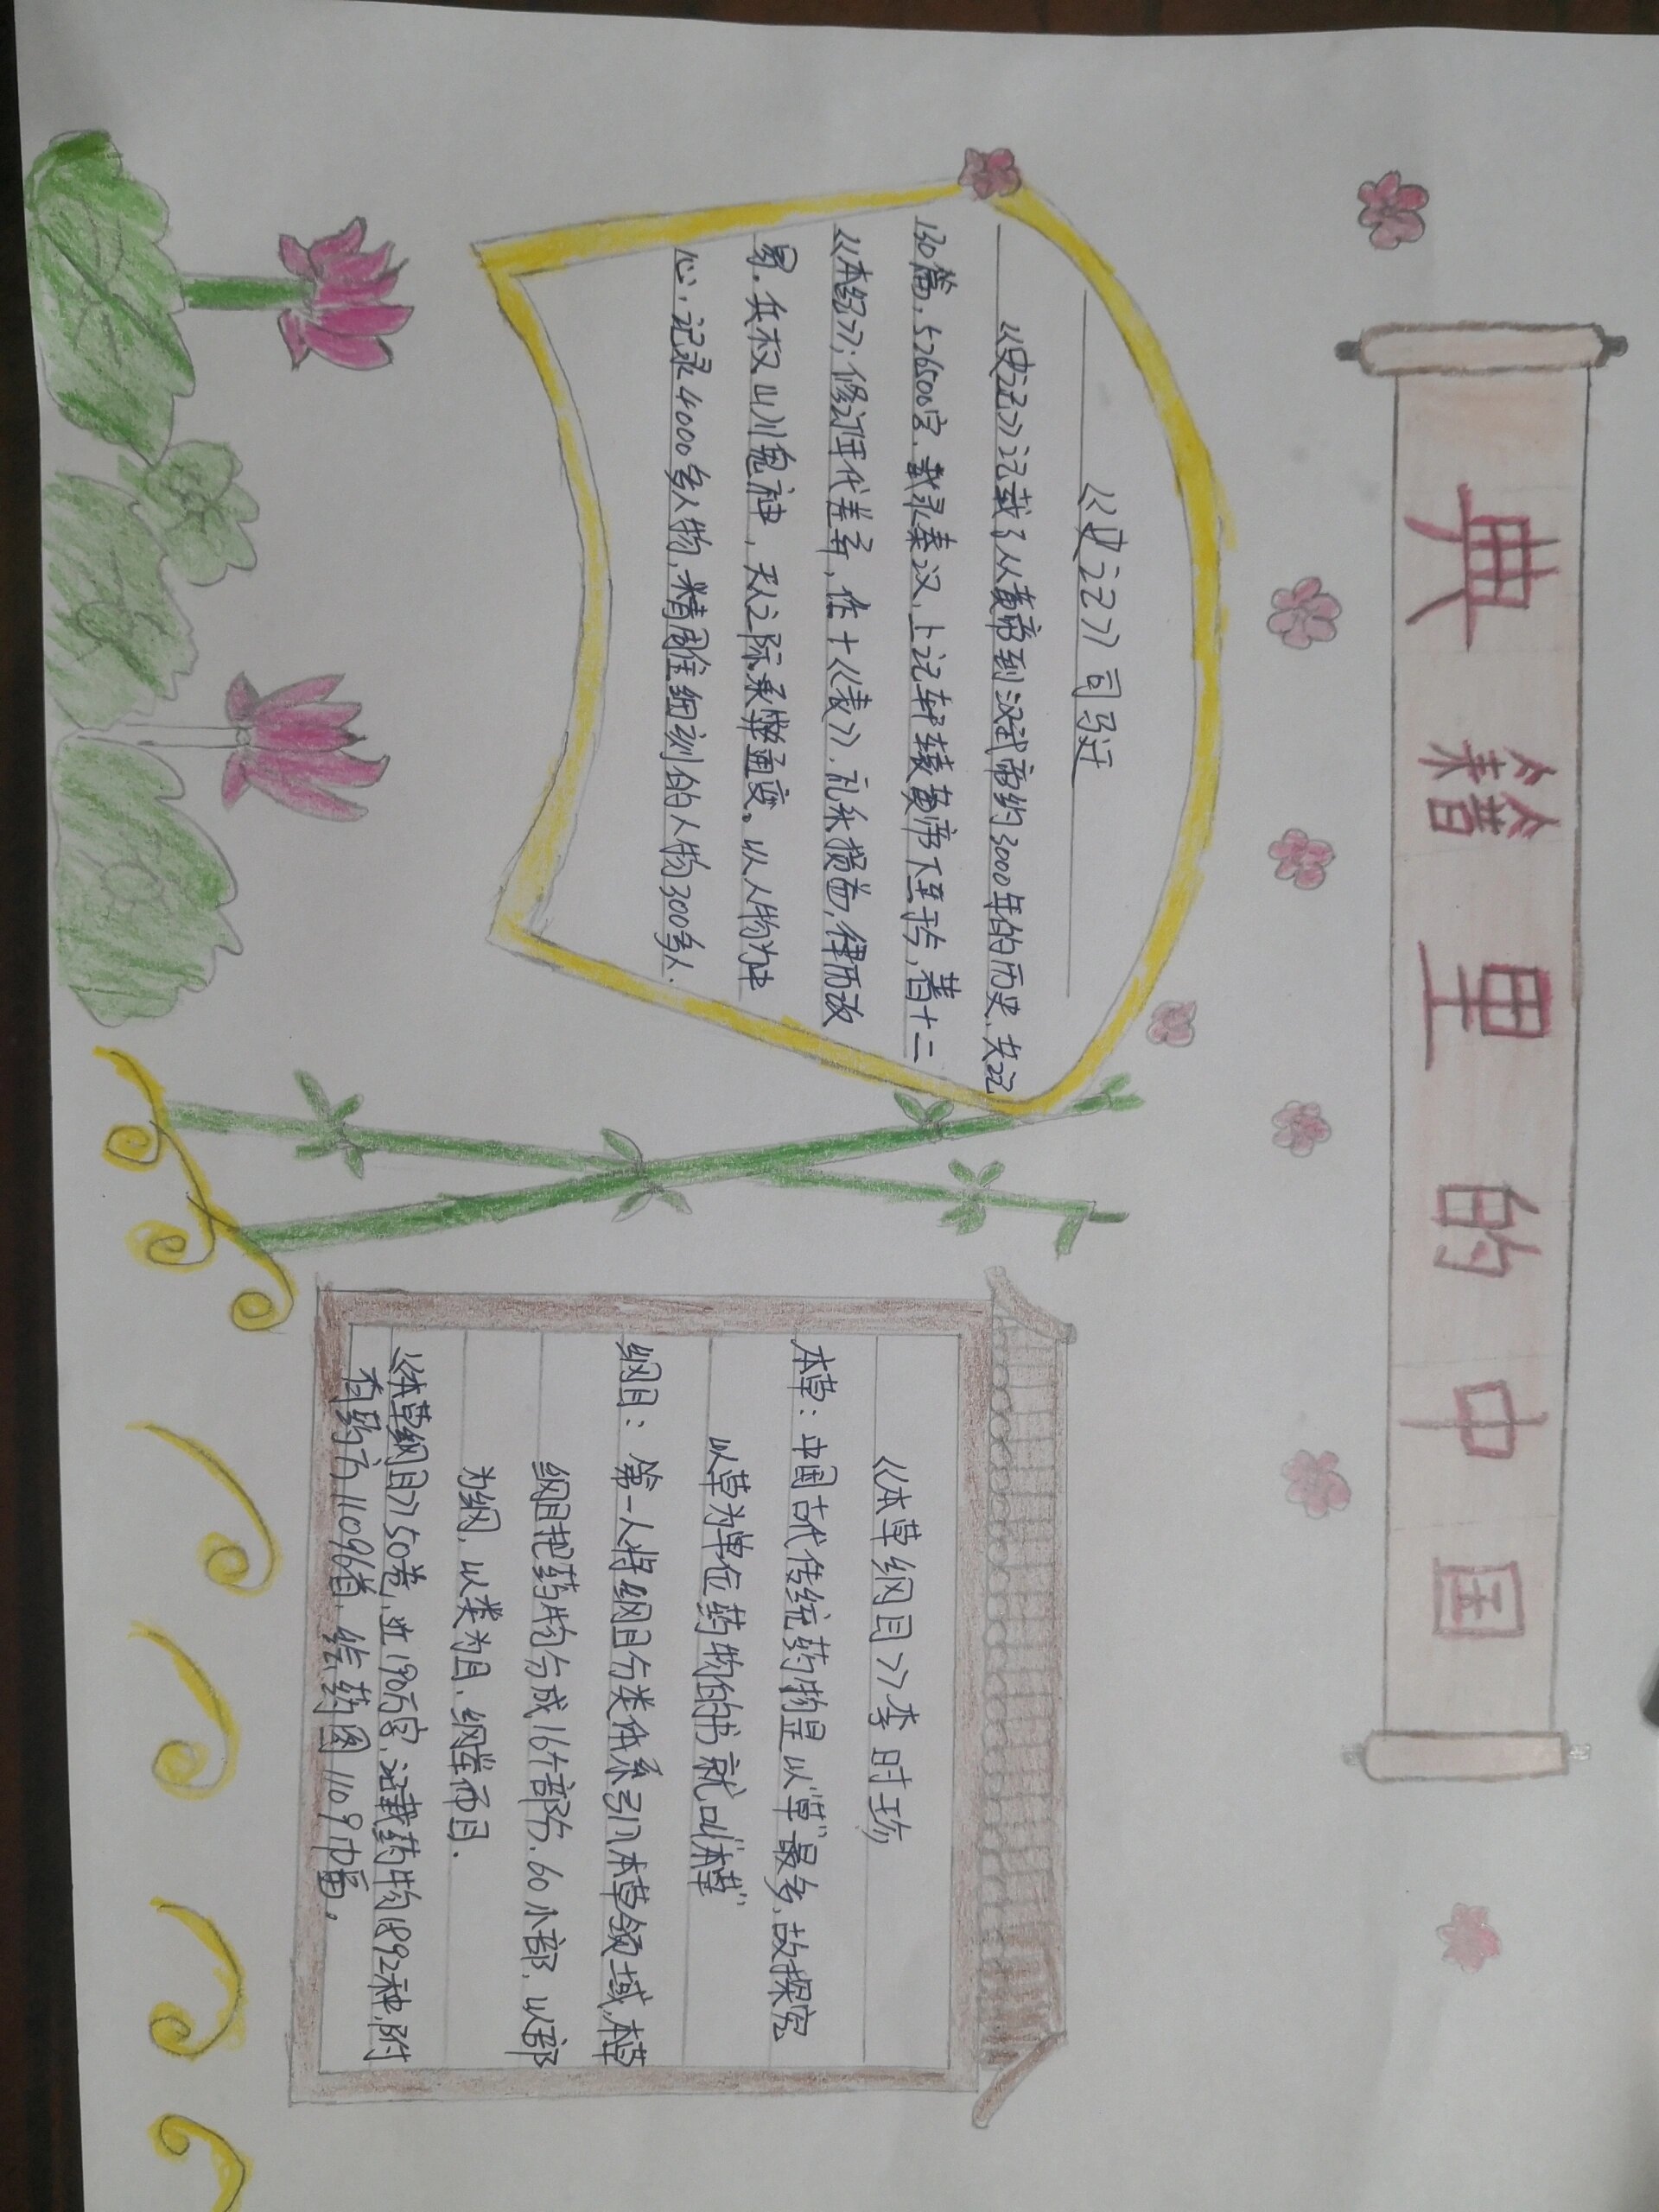 典籍里的中国
《史记》司马迁
《史记》记载了从黄帝到汉武帝约3000年的历史、共记
130篇、526500字、载录秦汉、上记轩辕黄帝下至于今，著十二
《本纪》；修订年代差矛，作十《表》、礼乐损益，律历改
易、兵权山川鬼神，天人之际承弊通变。以人物为中
心、记录4000多人物，精周细训的人物300多人.
《本草纲目》李时珍
本草：中国古代传统药物是以“草”最多，故探究
以草为单位药物的书就叫“本草”
纲目：第一人将纲目分类体系引入本草领域，本草
纲目把药物分成16个部分、60小部、以部
为纲，以类为目、纲举而目.
《本草纲目》50卷，近190万字，记载药物1892种，附
有药方11096首、绘药图1109幅。